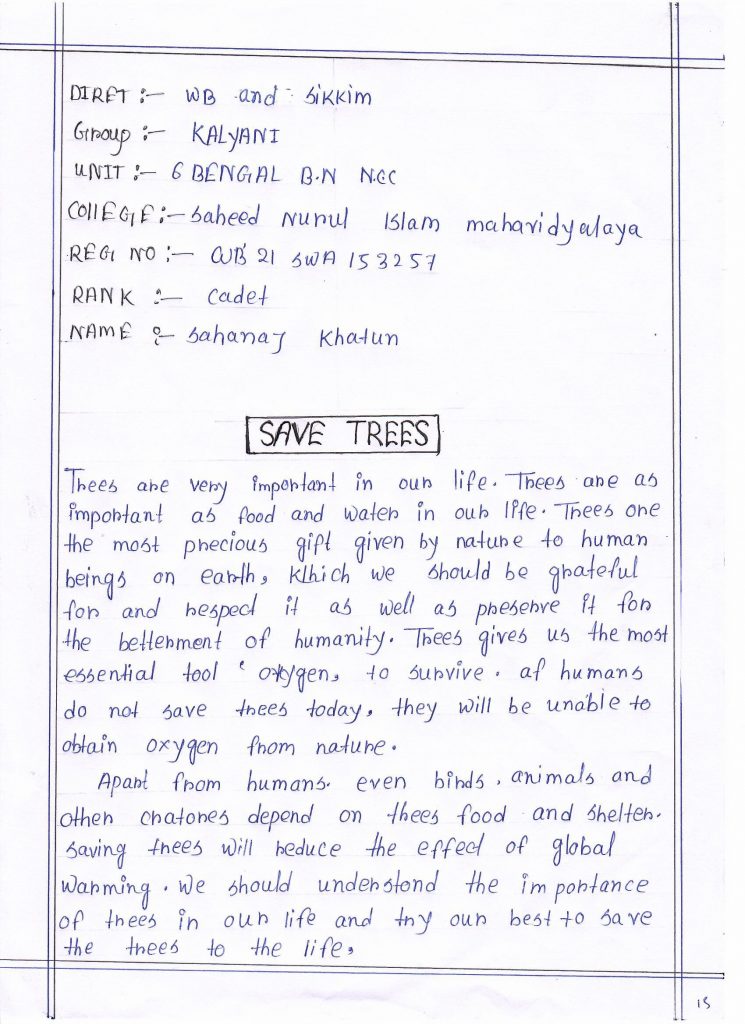 DIRET :- WB and Sikkim
Group :- KALYANI
UNIT :- 6 BENGAL B.N N.C.C
COllEGE :- Saheed Nurul Islam mahavidyalaya
REG NO :- WB 21 SWA 153257
RANK :- Cadet
NAME :- Sahanaj Khatun
SAVE TREES
Trees are very important in our life. Trees are as
important as food and water in our life. Trees one
the most precious gift given by nature to human
beings on earth, Which we should be grateful
for and respect it as well as preserve it for
the betterment of humanity. Trees gives us the most
essential tool ' oxygen, to survive. af humans
do not save trees today, they will be unable to
obtain oxygen from nature.
Apart from humans. even birds, animals and
other cratores depend on thees food and shelter.
saving trees will reduce the effect of global
warming. We should understond the importance
of trees in our life and try our best to save
the trees to the life,
15